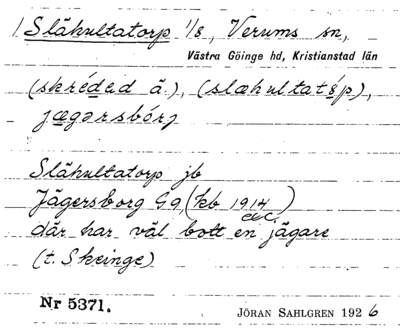 1 Slähultatorp 1/8, Verums sn,
Västra Göinge hd, Kristianstad län
(skréded ä.), (slæhultatǫ́p),
jægərsbórj
Slähultatorp jb
Jägersborg Gg, (kb 1914 etc.)
där har väl bott en jägare
(t. Skeinge)
Nr 5371.
JÖRAN SAHLGREN 1926